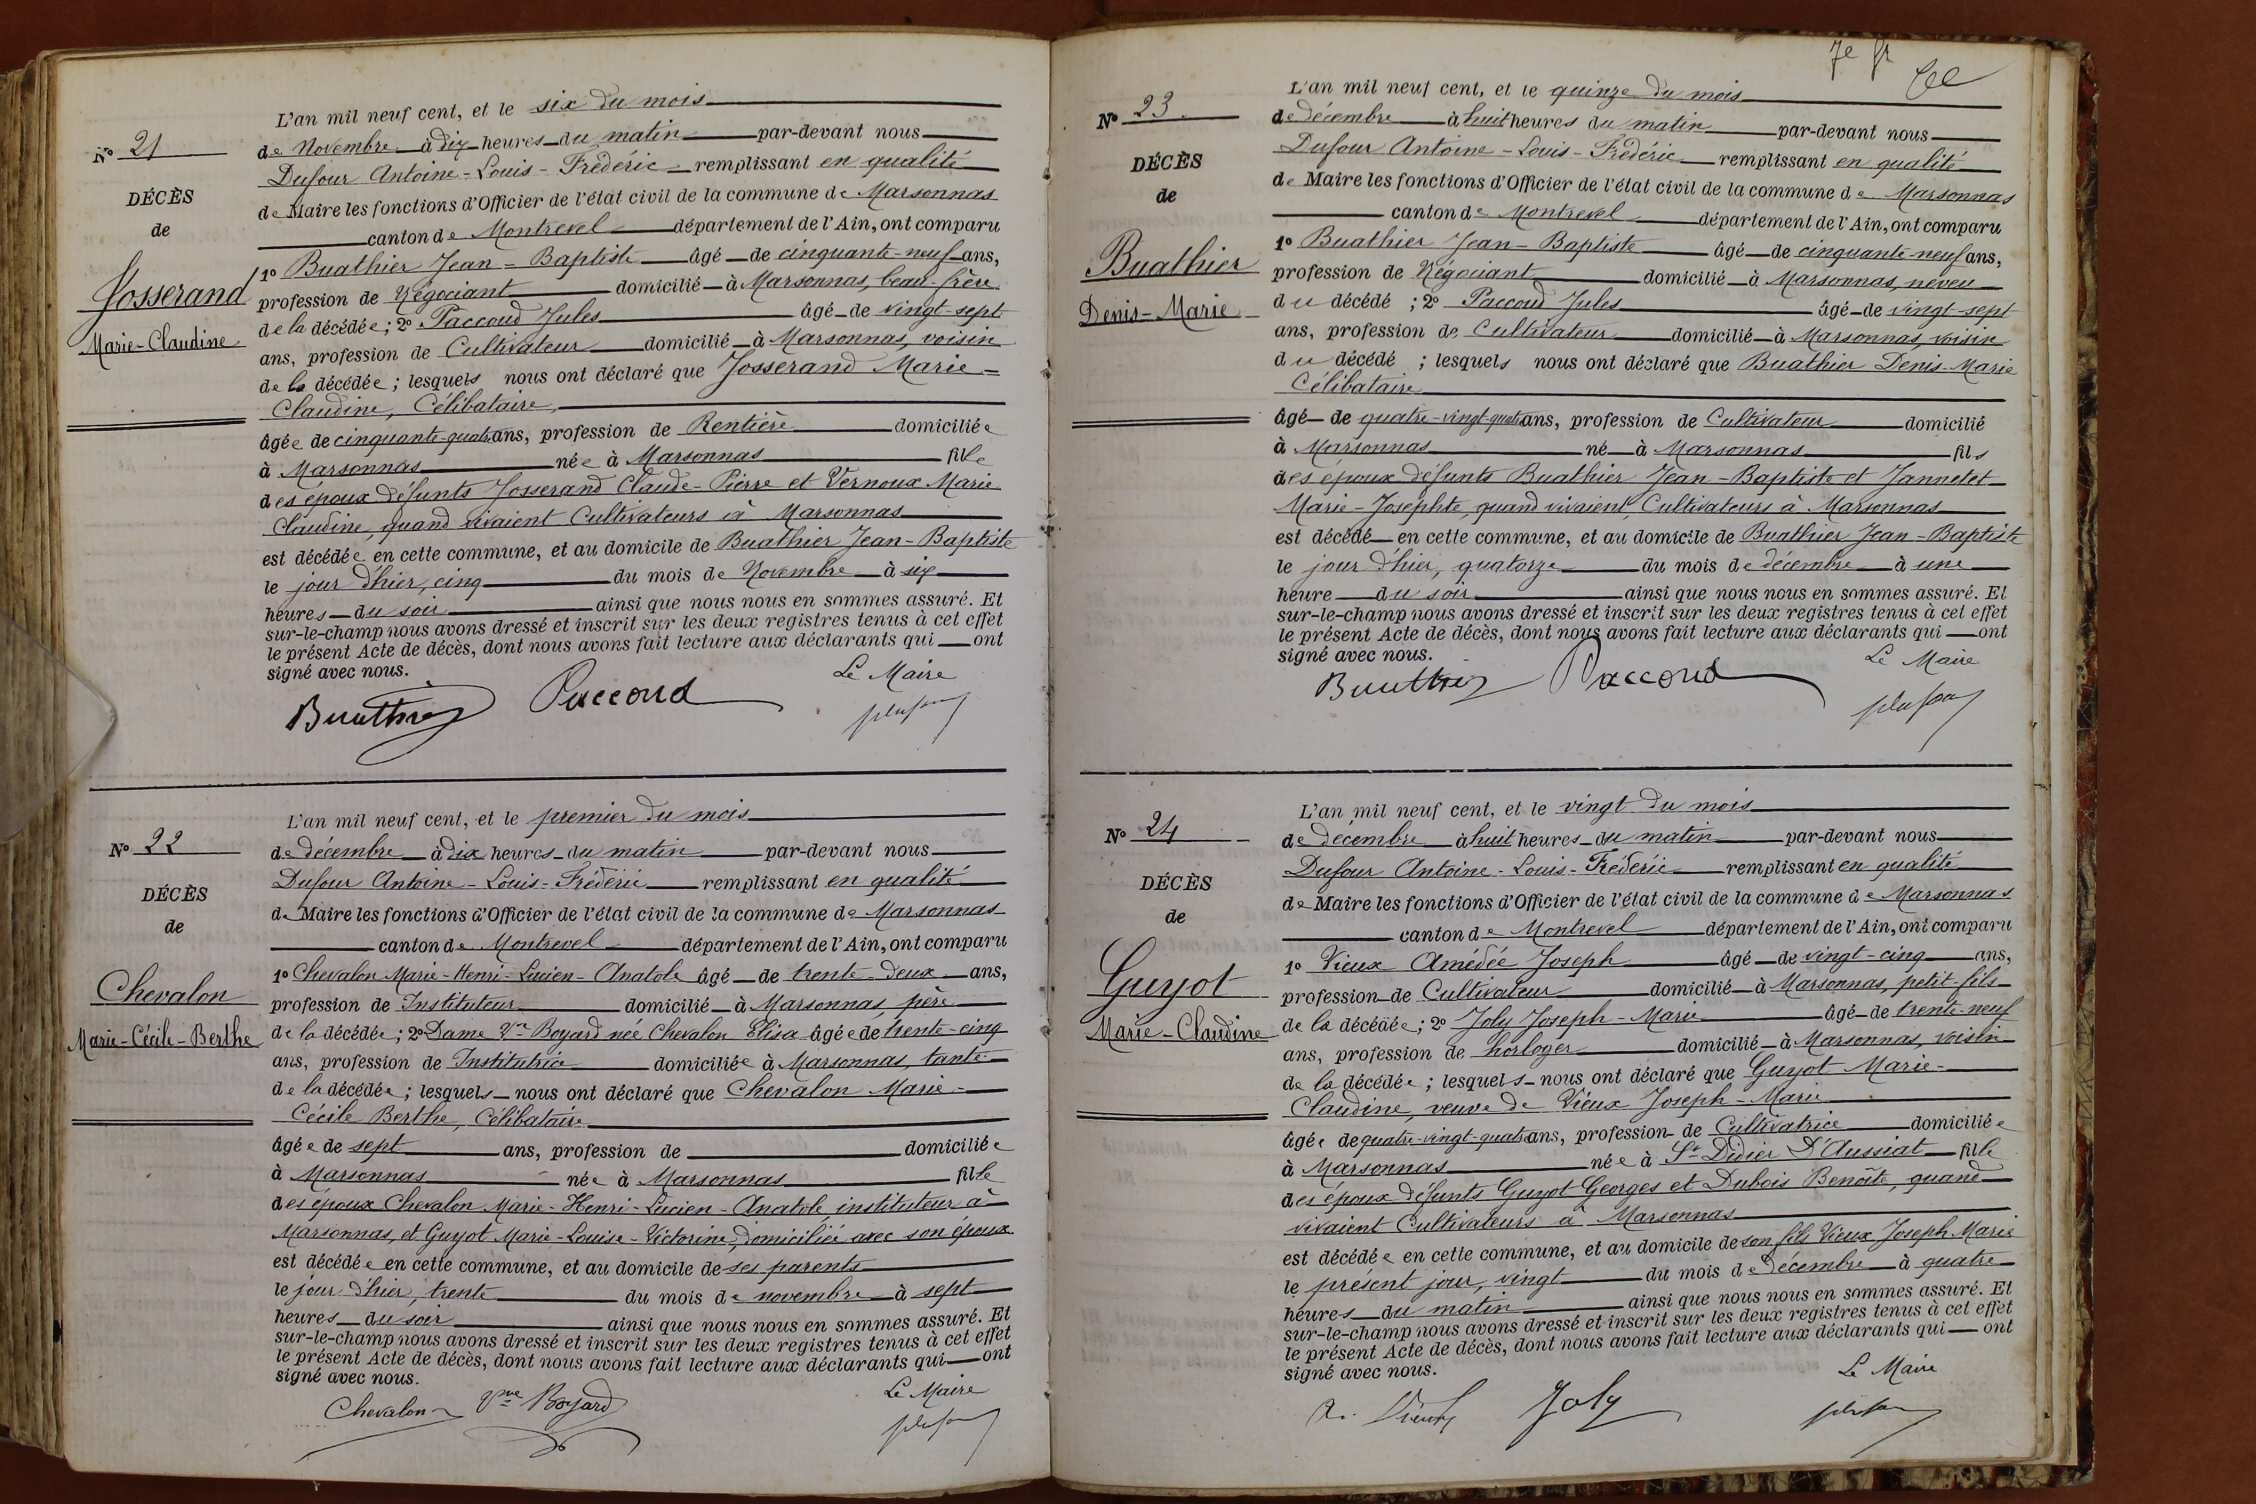 N° 21
DÉCÈS
de
Josserand
Marie-Claudine
L'an mil neuf cent, et le six du mois
de Novembre à dix heures du matin par-devant nous
Dufour Antoine-Louis-Frédéric remplissant en qualité
de Maire les fonctions d'Officier de l'état civil de la commune de Marsonnas
canton de Montrevel département de l'Ain, ont comparu
1° Buathier Jean-Baptiste âgé de cinquante-neuf ans,
profession de Négociant domicilié à Marsonnas, beau-frère
de la décédée; 2° Paccoud Jules âgé de vingt-sept
ans, profession de Cultivateur domicilié à Marsonnas, voisin
de la décédée; lesquels nous ont déclaré que Josserand Marie-
Claudine, Célibataire,
âgée de cinquante-quatre ans, profession de Rentière domiciliée
à Marsonnas née à Marsonnas fille
des époux défunts Josserand Claude-Pierre et Vernoux Marie
Claudine, quand vivaient Cultivateurs à Marsonnas
est décédée en cette commune, et au domicile de Buathier Jean-Baptiste
le jour d'hier, cinq du mois de Novembre à six
heures du soir ainsi que nous nous en sommes assuré. Et
sur-le-champ nous avons dressé et inscrit sur les deux registres tenus à cet effet
le présent Acte de décès, dont nous avons fait lecture aux déclarants qui ont
signé avec nous.
Le Maire
Buathier Paccoud Dufour
N° 22
DÉCÈS
de
Chevalon
Marie-Cécile-Berthe
L'an mil neuf cent, et le premier du mois
de décembre à dix heures du matin par-devant nous
Dufour Antoine-Louis-Frédéric remplissant en qualité
de Maire les fonctions d'Officier de l'état civil de la commune de Marsonnas
canton de Montrevel département de l'Ain, ont comparu
1° Chevalon Marie-Henri-Lucien-Anatole âgé de trente-deux ans,
profession de Instituteur domicilié à Marsonnas, père
de la décédée; 2° Dame Vve Boyard née Chevalon Elisa âgée de trente-cinq
ans, profession de Institutrice domiciliée à Marsonnas, tante
de la décédée; lesquels nous ont déclaré que Chevalon Marie-
Cécile Berthe, Célibataire
âgée de sept ans, profession de domiciliée
à Marsonnas née à Marsonnas fille
des époux Chevalon Marie-Henri-Lucien-Anatole, instituteur à
Marsonnas, et Guyot Marie-Louise-Victorine, domiciliée avec son époux
est décédée en cette commune, et au domicile de ses parents
le jour d'hier, trente du mois de novembre à sept
heures du soir ainsi que nous nous en sommes assuré. Et
sur-le-champ nous avons dressé et inscrit sur les deux registres tenus à cet effet
le présent Acte de décès, dont nous avons fait lecture aux déclarants qui ont
signé avec nous.
Le Maire
Chevalon Vve Boyard Dufour
N° 23
DÉCÈS
de
Buathier
Denis-Marie
L'an mil neuf cent, et le quinze du mois
de décembre à huit heures du matin par-devant nous
Dufour Antoine-Louis-Frédéric remplissant en qualité
de Maire les fonctions d'Officier de l'état civil de la commune de Marsonnas
canton de Montrevel département de l'Ain, ont comparu
1° Buathier Jean-Baptiste âgé de cinquante-neuf ans,
profession de Négociant domicilié à Marsonnas, neveu
du décédé ; 2° Paccoud Jules âgé de vingt-sept
ans, profession de Cultivateur domicilié à Marsonnas, voisin
du décédé ; lesquels nous ont déclaré que Buathier Denis-Marie
Célibataire
âgé de quatre-vingt-quatre ans, profession de Cultivateur domicilié
à Marsonnas né à Marsonnas fils
des époux défunts Buathier Jean-Baptiste et Jannetet
Marie-Josephte, quand vivaient Cultivateurs à Marsonnas
est décédé en cette commune, et au domicile de Buathier Jean-Baptiste
le jour d'hier, quatorze du mois de décembre à une
heure du soir ainsi que nous nous en sommes assuré. Et
sur-le-champ nous avons dressé et inscrit sur les deux registres tenus à cet effet
le présent Acte de décès, dont nous avons fait lecture aux déclarants qui ont
signé avec nous.
Le Maire
Buathier Paccoud Dufour
N° 24
DÉCÈS
de
Guyot
Marie-Claudine
L'an mil neuf cent, et le vingt du mois
de décembre à huit heures du matin par-devant nous
Dufour Antoine-Louis-Frédéric remplissant en qualité
de Maire les fonctions d'Officier de l'état civil de la commune de Marsonnas
canton de Montrevel département de l'Ain, ont comparu
1° Vieux Amédée Joseph âgé de vingt-cinq ans,
profession de Cultivateur domicilié à Marsonnas, petit-fils
de la décédée; 2° Joly Joseph-Marie âgé de trente-neuf
ans, profession de horloger domicilié à Marsonnas, voisin
de la décédée; lesquels nous ont déclaré que Guyot Marie-
Claudine, veuve de Vieux Joseph-Marie
âgée de quatre-vingt-quatre ans, profession de Cultivatrice domiciliée
à Marsonnas née à St Didier D'Aussiat fille
des époux défunts Guyot Georges et Dubois Benoîte, quand
vivaient Cultivateurs à Marsonnas
est décédée en cette commune, et au domicile de son fils Vieux Joseph Marie
le présent jour, vingt du mois de Décembre à quatre
heures du matin ainsi que nous nous en sommes assuré. Et
sur-le-champ nous avons dressé et inscrit sur les deux registres tenus à cet effet
le présent Acte de décès, dont nous avons fait lecture aux déclarants qui ont
signé avec nous.
Le Maire
Vieux Joly Dufour